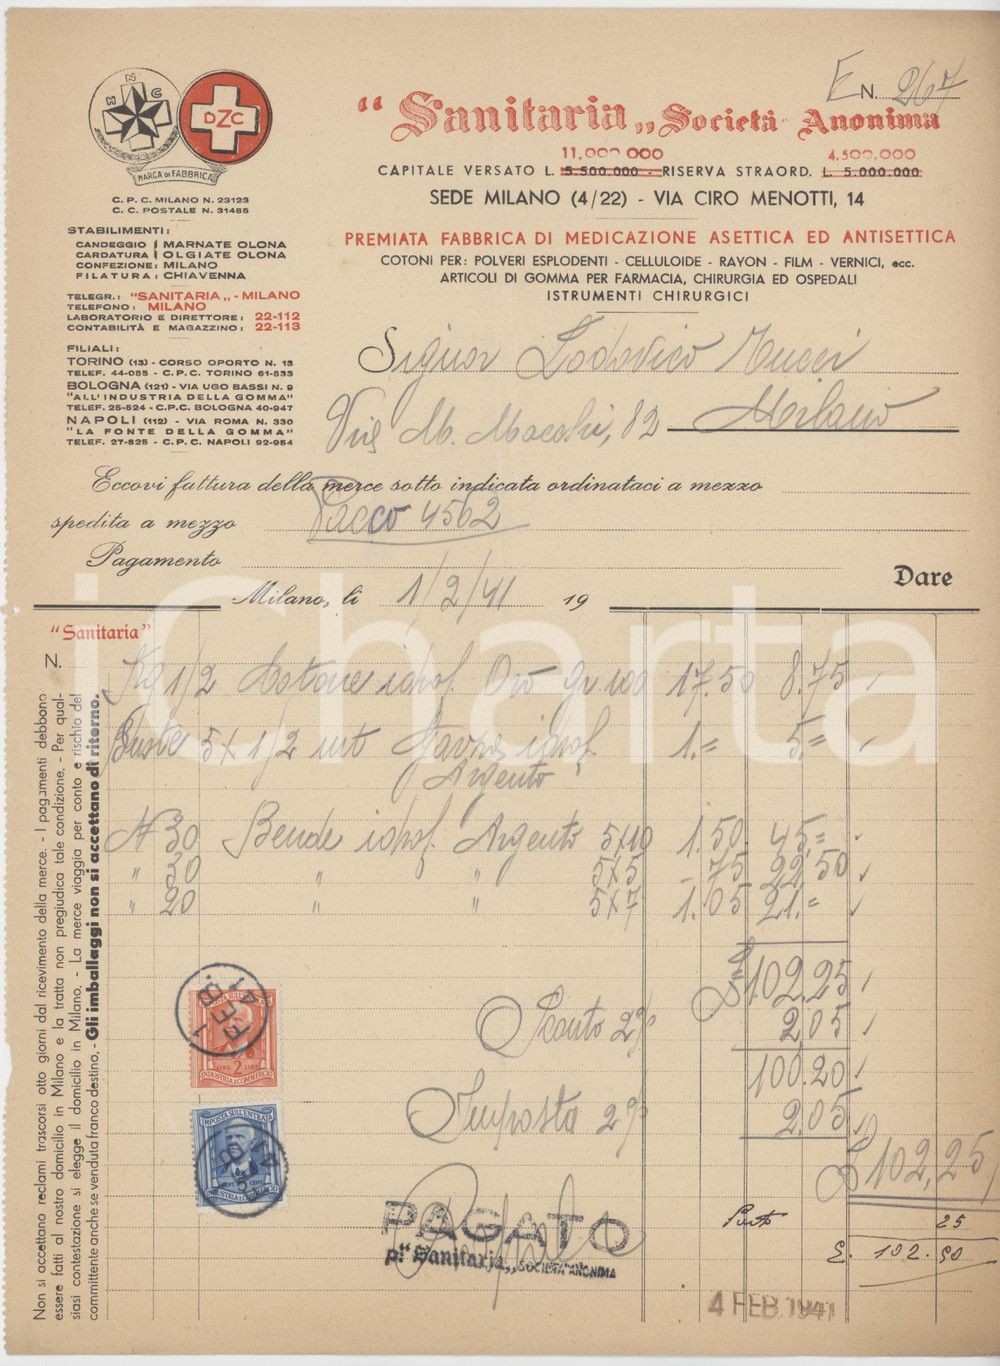 E N. 267
N
H C
DZC
MARCA DI FABBRICA
C. P. C. MILANO N. 23123
C. C. POSTALE N. 31485
"Sanitaria„ Società Anonima
11.000.000 4.500.000
CAPITALE VERSATO L. 5.500.000 - RISERVA STRAORD. L. 5.000.000
SEDE MILANO (4/22) - VIA CIRO MENOTTI, 14
PREMIATA FABBRICA DI MEDICAZIONE ASETTICA ED ANTISETTICA
COTONI PER: POLVERI ESPLODENTI - CELLULOIDE - RAYON - FILM - VERNICI, ecc.
ARTICOLI DI GOMMA PER FARMACIA, CHIRURGIA ED OSPEDALI
ISTRUMENTI CHIRURGICI
STABILIMENTI:
CANDEGGIO MARNATE OLONA
CARDATURA OLGIATE OLONA
CONFEZIONE: MILANO
FILATURA: CHIAVENNA
TELEGR.: "SANITARIA„ - MILANO
TELEFONO: MILANO
LABORATORIO E DIRETTORE: 22-112
CONTABILITÀ E MAGAZZINO: 22-113
FILIALI:
TORINO (13) - CORSO OPORTO N. 13
TELEF. 44-085 - C.P.C. TORINO 61-835
BOLOGNA (121) - VIA UGO BASSI N. 9
"ALL'INDUSTRIA DELLA GOMMA"
TELEF. 25-524 - C.P.C. BOLOGNA 40-947
NAPOLI (112) - VIA ROMA N. 330
"LA FONTE DELLA GOMMA"
TELEF. 27-825 - C.P.C. NAPOLI 92-954
Signor Lodovico Mucci
Via M. Macchi, 82 Milano
Eccovi fattura della merce sotto indicata ordinataci a mezzo
spedita a mezzo Pacco 4562
Pagamento
Milano, li 1/2/41 19
Dare
"Sanitaria"
N.
Kg 1/2 Cotone idrof. Oro Gr. 100 17.50 8.75
Buste 5 x 1/2 mt Garza idrof. 1.= 5.=
Argento
N 30 Bende idrof. Argento 5x10 1.50 45.=
" 30 " " 5x5 -.75 22.50
" 20 " " 5x7 1.05 21.=
£ 102.25
Sconto 2% 2,05
100.20
Imposta 2% 2,05
£ 102,25
Porto 25
£. 102.50
IMPOSTA SULL'ENTRATA
LIRE 2
INDUSTRIA E COMMERCIO
1 FEB. 41
IMPOSTA SULL'ENTRATA
INDUSTRIA E COMMERCIO
PAGATO
p. "Sanitaria„ SOCIETA' ANONIMA
4 FEB. 1941
Non si accettano reclami trascorsi otto giorni dal ricevimento della merce. - I pagamenti debbono
essere fatti al nostro domicilio in Milano e la tratta non pregiudica tale condizione. - Per qual-
siasi contestazione si elegge il domicilio in Milano. - La merce viaggia per conto e rischio del
committente anche se venduta franco destino. - Gli imballaggi non si accettano di ritorno.
iCharta